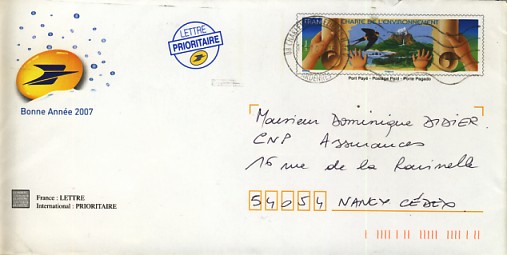 LETTRE
PRIORITAIRE
FRANCE CHARTE DE L'ENVIRONNEMENT
Port Payé - Postage Paid - Porte Pagado
Bonne Année 2007
Monsieur Dominique DIDIER.
CNP Assurances
16 rue de la Ravinelle
54054 NANCY CÉDEX
France : LETTRE
International : PRIORITAIRE